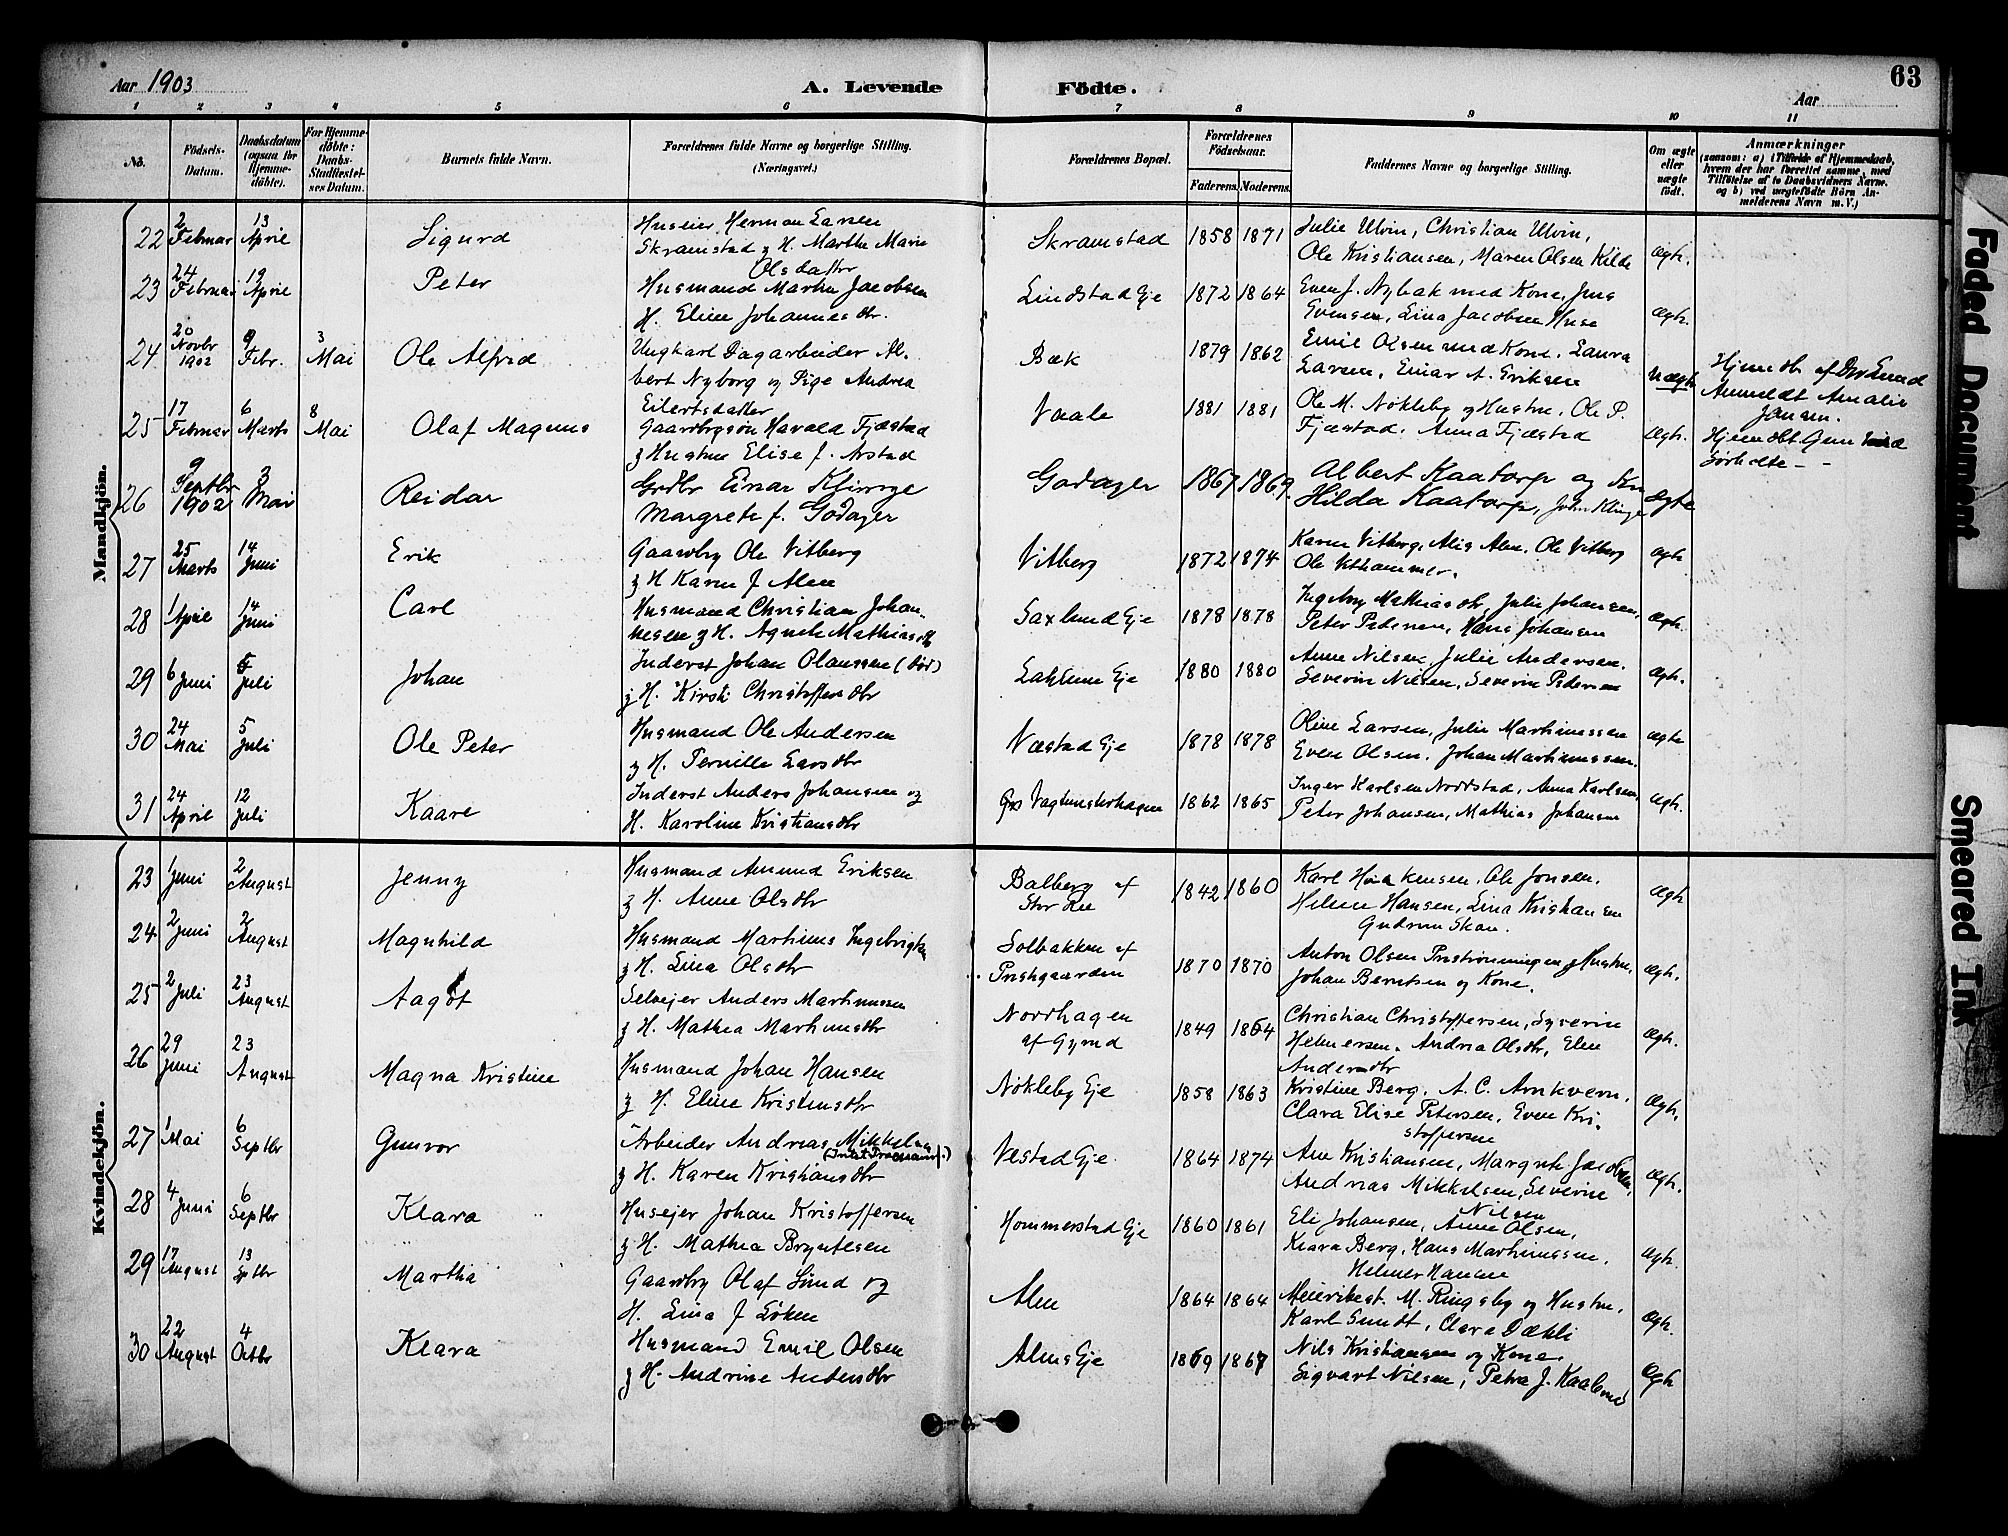 Aar 1903
A. Levende Födte.
63
Aar
1 2 3 4 5 6 7 8 9 10 11
No.
Födsels-Datum.
Daabsdatum (ogsaa for Hjemme-döbte).
For Hjemme-döbte: Daabs-Stadfæstelses Datum.
Barnets fulde Navn.
Forældrenes fulde Navne og borgerlige Stilling. (Næringsvei.)
Forældrenes Bopæl.
Forældrenes Födselsaar.
Faderens. Moderens.
Faddernes Navne og borgerlige Stilling.
Om ægte eller uægte födt.
Anmærkninger
(saasom: a) i Tilfælde af Hjemmedaab, hvem der har forrettet samme, med Tilföielse af to Daabsvidners Navne. og b) ved uægtefödte Börn Anmelderens Navn m. V.)
Mandkjön.
22 2 Februar 13 April Sigurd
Huseier Herman Larsen
Skramstad og H. Marthe Marie
Olsdatter
Skramstad 1858 1871
Julie Ulvin, Christian Ulvin,
Ole Kristiansen, Maren Olsen Kilde
Ægte.
23 24 Februar 19 April Peter
Husmand Martin Jacobsen
H. Eline Johannesdtr.
Lindstad Eje 1872 1864
Even J. Nybak med Kone, Jens
Evensen, Lina Jacobsen Huse
Ægte.
24 20 Novbr 1902 9 Febr. 3 Mai Ole Alfred
Ungkarl Dagarbeider Al-
bert Nyborg og Pige Andrea
Eilertsdatter
Bæk 1879 1862
Emil Olsen med Kone, Laura
Larsen, Einar A. Eriksen
Uægte
Hjemdbt af Dr. Lund
Anmeldt Amalie
Jansen.
25 17 Februar 6 Marts 8 Mai Olaf Magnus
Gaardbrgsön Harald Fjæstad
og Hustru Elise f. Arstad
Vaale 1881 1881
Ole M. Nökleby og Hustru, Ole P.
Fjæstad, Anna Fjæstad
Ægte.
Hjemdbt
26 9 Septbr 1902 3 Mai Reidar
Grdbr Einar Klinge
Margrete f. Godager
Godager 1867 1869
Albert Kaatorp og
Hilda Kaatorp, John Klinge
ægte
27 25 Marts 14 Juni Erik
Gaardbg Ole Vitberg
og H Karen f Alen
Vitberg 1872 1874
Karen Vitberg, Alis Alen, Ole Vitberg
Ole Uthammer.
Ægte
28 1 April 14 Juni Carl
Husmand Christian Johan-
nesen og H. Agnete Mathiasdtr
Saxlund Eje 1878 1878
Ingeborg Mathiasdtr, Julie Johansen,
Peter Pedersen, Hans Johansen
Ægte.
29 6 Juni 5 Juli Johan
Inderst Johan Olaussen (död)
og H. Kirsti Christoffersdtr
Eje 1880 1880
Anne Nilsen, Julie Andersen.
Severin Nilsen, Severin Pedersen
Ægte.
30 24 Mai 5 Juli Ole Peter
Husmand Ole Andersen
og H. Pernille Larsdtr
Næstad Eje 1878 1878
Oline Larsen, Julie Martinussen
Even Olsen. Johan Martinussen.
Ægte
31 24 April 12 Juli Kaare
Inderst Anders Johansen og
H. Karoline Kristiansdtr
1862 1865
Inger Karlsen Nordstad, Anna Karlsen,
Peter Johansen, Mathias Johansen
Ægte.
Kvindekjön.
23 1 Juni 2 August Jenny
Husmand Amund Eriksen
og H. Anne Olsdtr
Balberg af
Stor Ree 1842 1860
Karl Haakensen, Ole Jonsen,
Helene Hansen, Lina Kristiansen
Gudrun Skau.
Ægte
24 2 Juni 2 August Magnhild
Husmand Martinus Ingebrigts
og H. Lina Olsdtr
Solbakken af
Prestgaarden 1870 1870
Anton Olsen Preströnningen og Hustru,
Johan Berntsen og Kone.
Ægte.
25 2 Juli 23 August Aagot
Selvejer Anders Martinussen
og H. Mathea Martinusdtr
Nordhagen
af Gymd 1849 1864
Christian Christoffersen, Syverine
Helmersen, Andrea Olsdtr, Eline
Andersdtr
Ægte.
26 29 Juni 23 August Magna Kristine
Husmand Johan Hansen
og H. Eline Kristensdtr
Nökleby Eje 1858 1863
Kristine Berg, A. C. Arnkvern,
Clara Elise Petersen, Even Kri-
stoffersen
Ægte.
27 1 Mai 6 Septbr Gunvor
Arbeider Andreas Mikkelsen
og H. Karen Kristiansdtr
Vestad Eje. 1864 1874
Ane Kristiansen, Margrete Jacobsen,
Andreas Mikkelsen, Severine
Nilsen
Ægte.
28 4 Juni 6 Septbr Klara
Husejer Johan Kristoffersen
og H. Mathea Bryntesen
Hommerstad Eje 1860 1861
Eli Johansen, Anne Olsen,
Klara Berg, Hans Martinussen,
Helmer Hansen
Ægte.
29 17 August 13 Sptbr Martha
Gaardbg Olaf Lund og
H. Lina f Löken
Alen 1864 1864
Meieribest. M. Ringsby og Hustru,
Karl Smidt, Clara Dæhli
Ægte.
30 22 August 4 Octbr Klara
Husmand Emil Olsen
og H. Andrine Andersdtr
Alens Eje 1869 1867
Nils Kristiansen og Kone.
Sigvart Nilsen, Petra J. Kaalsrud
Ægte
Faded Document
Smeared Ink